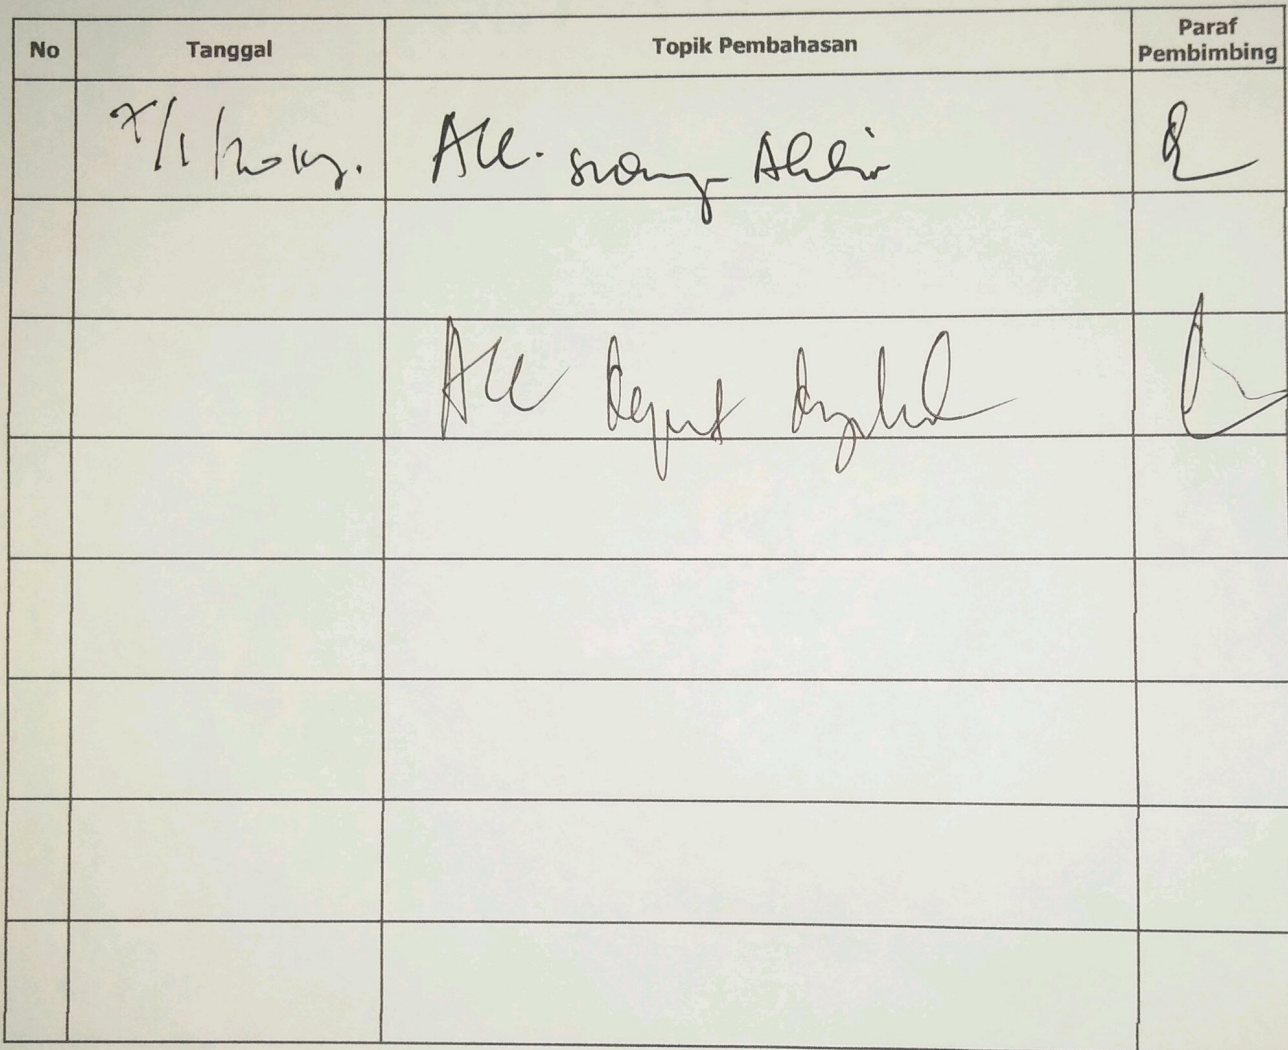 No Tanggal Topik Pembahasan Paraf Pembimbing
7/1/ Acc. sidang Akhir
Acc dapat